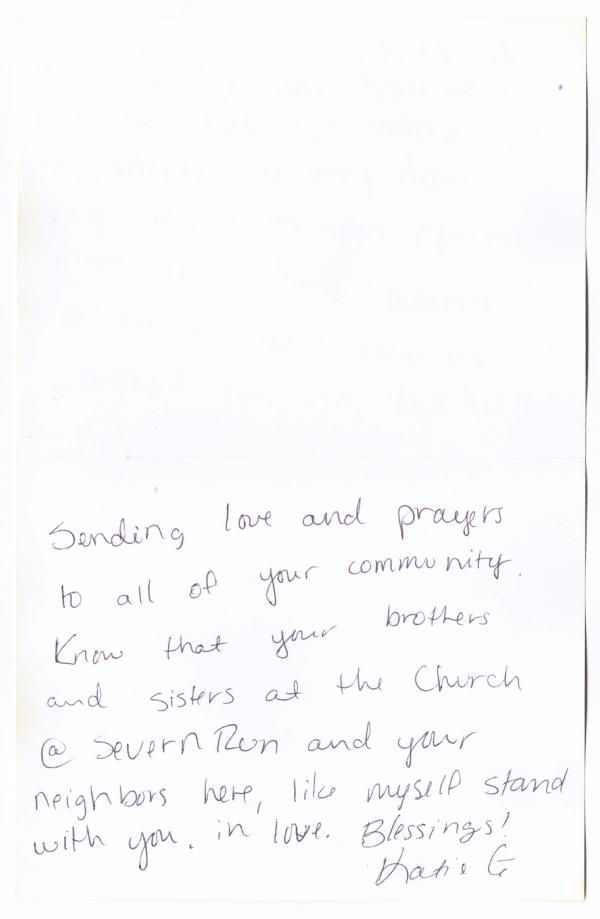 Sending love and prayers
to all of your community.
Know that your brothers
and sisters at the Church
@ Severn Run and your
neighbors here, like myself stand
with you. in love. Blessings!
Katie G